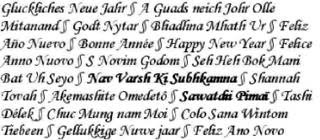 Gluckliches Neue Jahr ∬ A Guads neich Johr Olle
Mitanand ∬ Godt Nytar ∬ Bhadhna Mhath Ur ∬ Feliz
Año Nuevo ∬ Bonne Année ∬ Happy New Year ∬ Felice
Anno Nuovo ∬ S Novim Godom ∬ Seh Heh Bok Mani
Bat Uh Seyo ∬ Nav Varsh Ki Subhkamna ∬ Shannah
Tovah ∬ Akemashite Omedetô ∬ Sawatdii Pimaï ∬ Tashi
Délek ∬ Chuc Mung nam Moi ∬ Colo Sana Wintom
Tiebeen ∬ Gellukkige Nuwe jaar ∬ Feliz Ano Novo